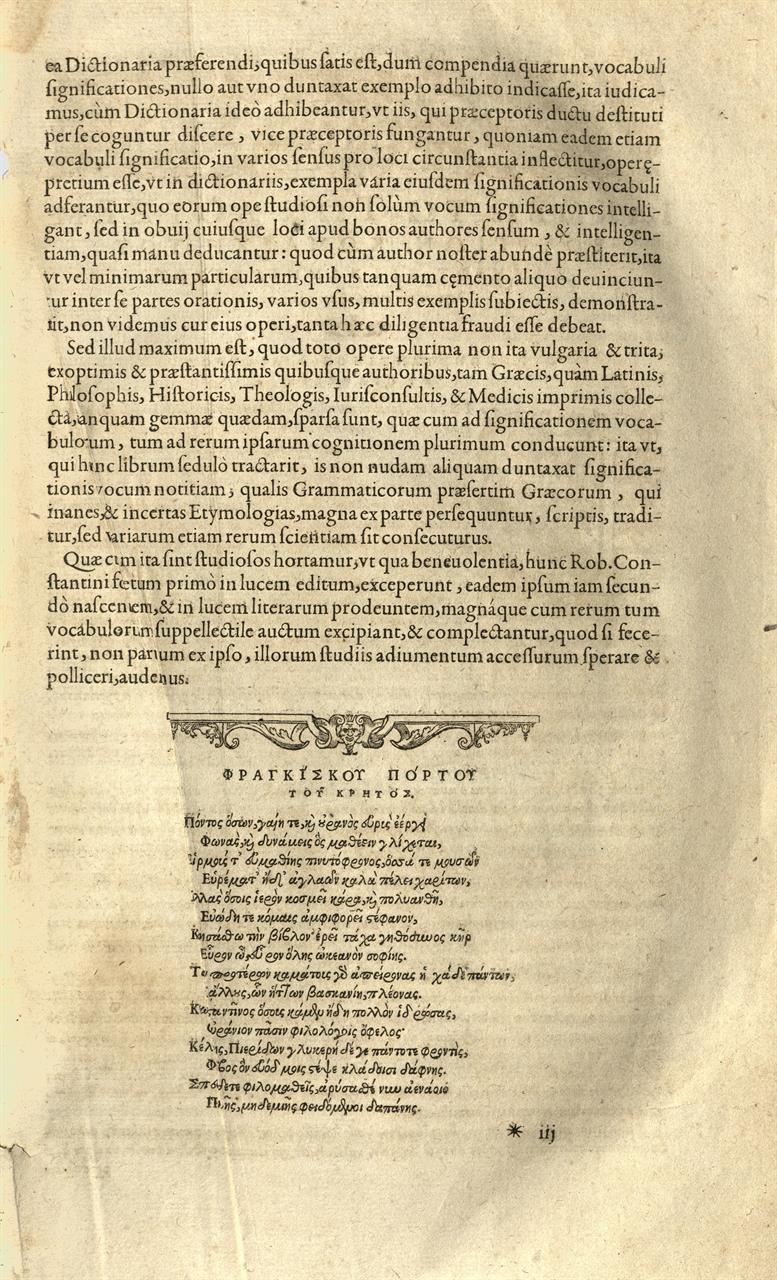 ea Dictionaria præferendi, quibus satis est, dum compendia quærunt, vocabuli
significationes, nullo aut vno duntaxat exemplo adhibito indicasse, ita iudica-
mus, cùm Dictionaria ideò adhibeantur, vt iis, qui præceptoris ductu destituti
per se coguntur discere, vice præceptoris fungantur, quoniam eadem etiam
vocabuli significatio, in varios sensus pro loci circunstantia inflectitur, operę-
pretium esse, vt in dictionariis, exempla varia eiusdem significationis vocabuli
adferantur, quo eorum ope studiosi non solùm vocum significationes intelli-
gant, sed in obuij cuiusque loci apud bonos authores sensum, & intelligen-
tiam, quasi manu deducantur: quod cùm author noster abundè præstiterit, ita
vt vel minimarum particularum, quibus tanquam cęmento aliquo deuinciun-
tur inter se partes orationis, varios vsus, multis exemplis subiectis, demonstra-
rit, non videmus cur eius operi, tanta hæc diligentia fraudi esse debeat.
Sed illud maximum est, quod toto opere plurima non ita vulgaria & trita,
ex optimis & præstantissimis quibusque authoribus, tam Græcis, quàm Latinis,
Philosophis, Historicis, Theologis, Iurisconsultis, & Medicis imprimis colle-
cta, tanquam gemmæ quædam, sparsa sunt, quæ cum ad significationem voca-
bulorum, tum ad rerum ipsarum cognitionem plurimum conducunt: ita vt,
qui hunc librum sedulò tractarit, is non nudam aliquam duntaxat significa-
tionis vocum notitiam, qualis Grammaticorum præsertim Græcorum, qui
inanes, & incertas Etymologias, magna ex parte persequuntur, scriptis, tradi-
tur, sed variarum etiam rerum scientiam sit consecuturus.
Quæ cum ita sint studiosos hortamur, vt qua beneuolentia, hunc Rob. Con-
stantini fetum primò in lucem editum, exceperunt, eadem ipsum iam secun-
dò nascentem, & in lucem literarum prodeuntem, magnáque cum rerum tum
vocabulorum suppellectile auctum excipiant, & complectantur, quod si fece-
rint, non paruum ex ipso, illorum studiis adiumentum accessurum sperare &
polliceri, audemus.
ΦΡΑΓΚΙΣΚΟΥ ΠΟΡΤΟΥ
ΤΟΥ ΚΡΗΤΟΣ.
Πόντος ὅσων, γαίη τε, καὶ οὐρανὸς εὐρὺς ἐέργει
Φωνὰς, καὶ δυνάμεις ὃς μαθέειν γλίχεται,
τ' εὐμαθίης πινυτόφρονος, ὅσσά τε μουσῶν
Εὑρέματ' ἠδ' ἀγλαῶν καλὰ πέλει χαρίτων,
ὅσοις ἱερὸν κοσμεῖ κάρα, καὶ πολυανθῆ,
Εὐώδη τε κόμαις ἀμφιφορεῖ στέφανον,
Κτησάσθω τὴν βίβλον· ἐρεῖ τάχα γηθόσυνος κῆρ
Εὗρον εὗρον ὅλης ὠκεανὸν σοφίης.
προτέρου καμάτοις γὸ ἀπείρονας ἠ πάντων,
ὧν ἧττον βασκανίη, πλέονας.
Κωνσταντῖνος ὅσοις κάμεν ἤδη πολλὸν ἱδρώσας,
Οὐράνιον πᾶσιν φιλολόγοις ὄφελος·
Πιερίδων γλυκερὴ δέ γε πάντοτε φροντὶς,
Φοῖβος ὃν στέψε κλάδοισι δάφνης.
Σπεύδετε φιλομαθεῖς, ἀρύσασθέ νυν ἀενάοιο
Πηγῆς, μηδεμιῆς φειδόμενοι δαπάνης.
* iij